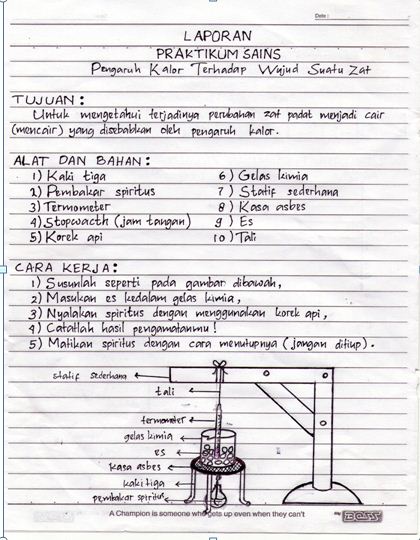 Date :
LAPORAN
PRAKTIKUM SAINS
Pengaruh Kalor Terhadap Wujud Suatu Zat
TUJUAN :
Untuk mengetahui terjadinya perubahan zat padat menjadi cair
(mencair) yang disebabkan oleh pengaruh kalor.
ALAT DAN BAHAN :
1) Kaki tiga
2) Pembakar spiritus
3) Termometer
4) Stopwacth (jam tangan)
5) Korek api
6) Gelas kimia
7) Statif sederhana
8) Kasa asbes
9) Es
10) Tali
CARA KERJA :
1) Susunlah seperti pada gambar dibawah,
2) Masukan es kedalam gelas kimia,
3) Nyalakan spiritus dengan menggunakan korek api,
4) Catatlah hasil pengamatanmu !
5) Matikan spiritus dengan cara menutupnya (jangan ditiup).
statif sederhana
tali
termometer
gelas kimia
es
kasa asbes
kaki tiga
pembakar spiritus
A Champion is someone who gets up even when they can't
my BOSS